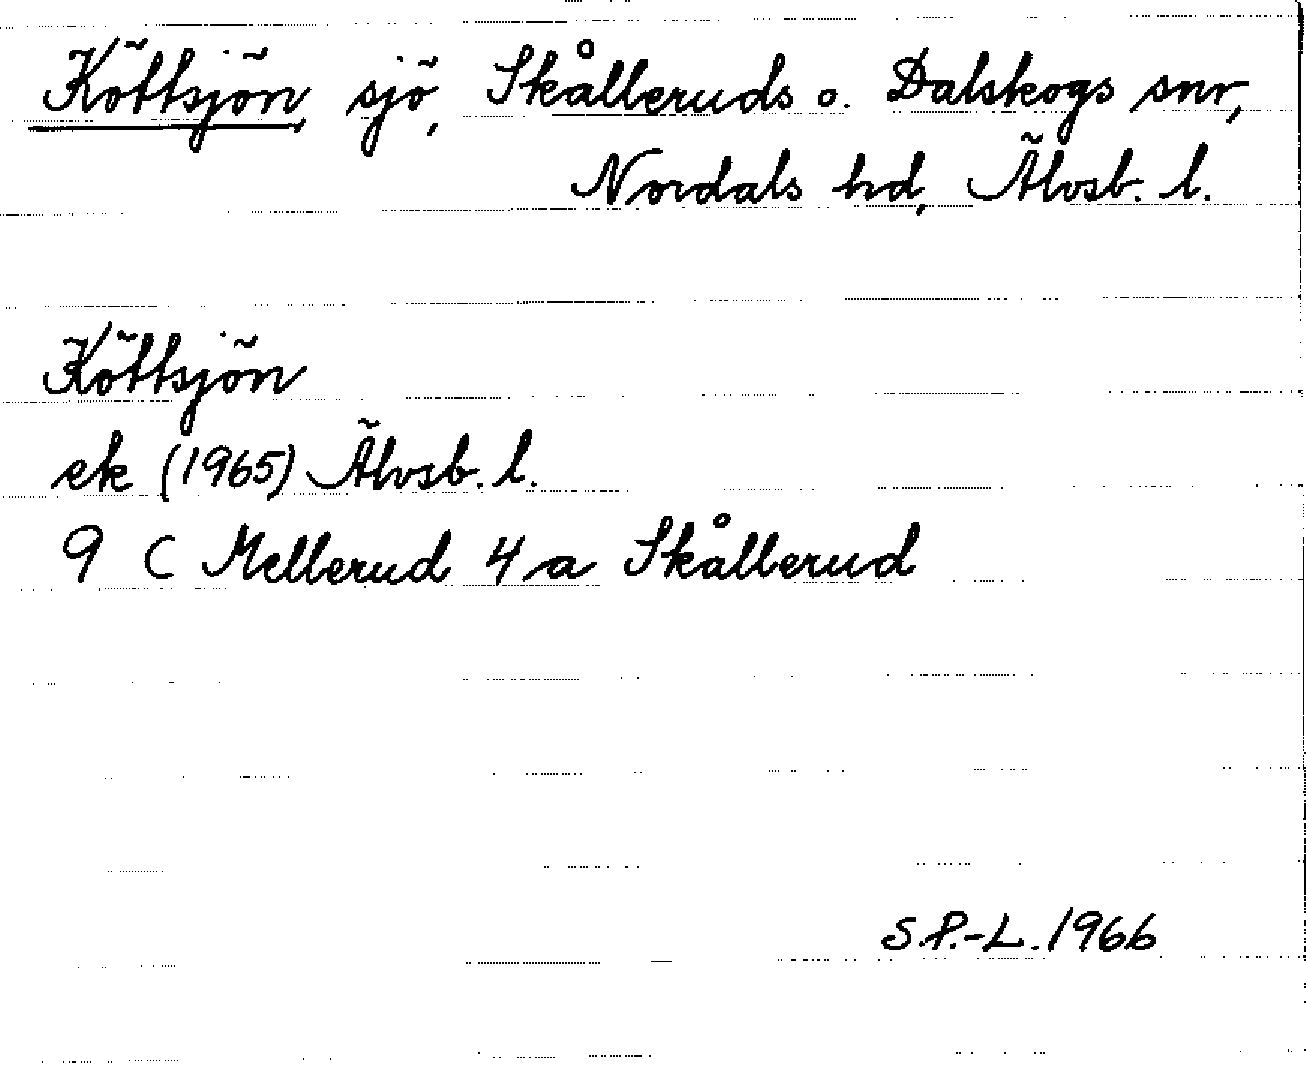 Köttsjön, sjö, Skålleruds o. Dalskogs snr,
Nordals hd, Älvsb. l.
Köttsjön
ek (1965) Älvsb. l.
9 C Mellerud 4 a Skållerud
S.P.-L. 1966